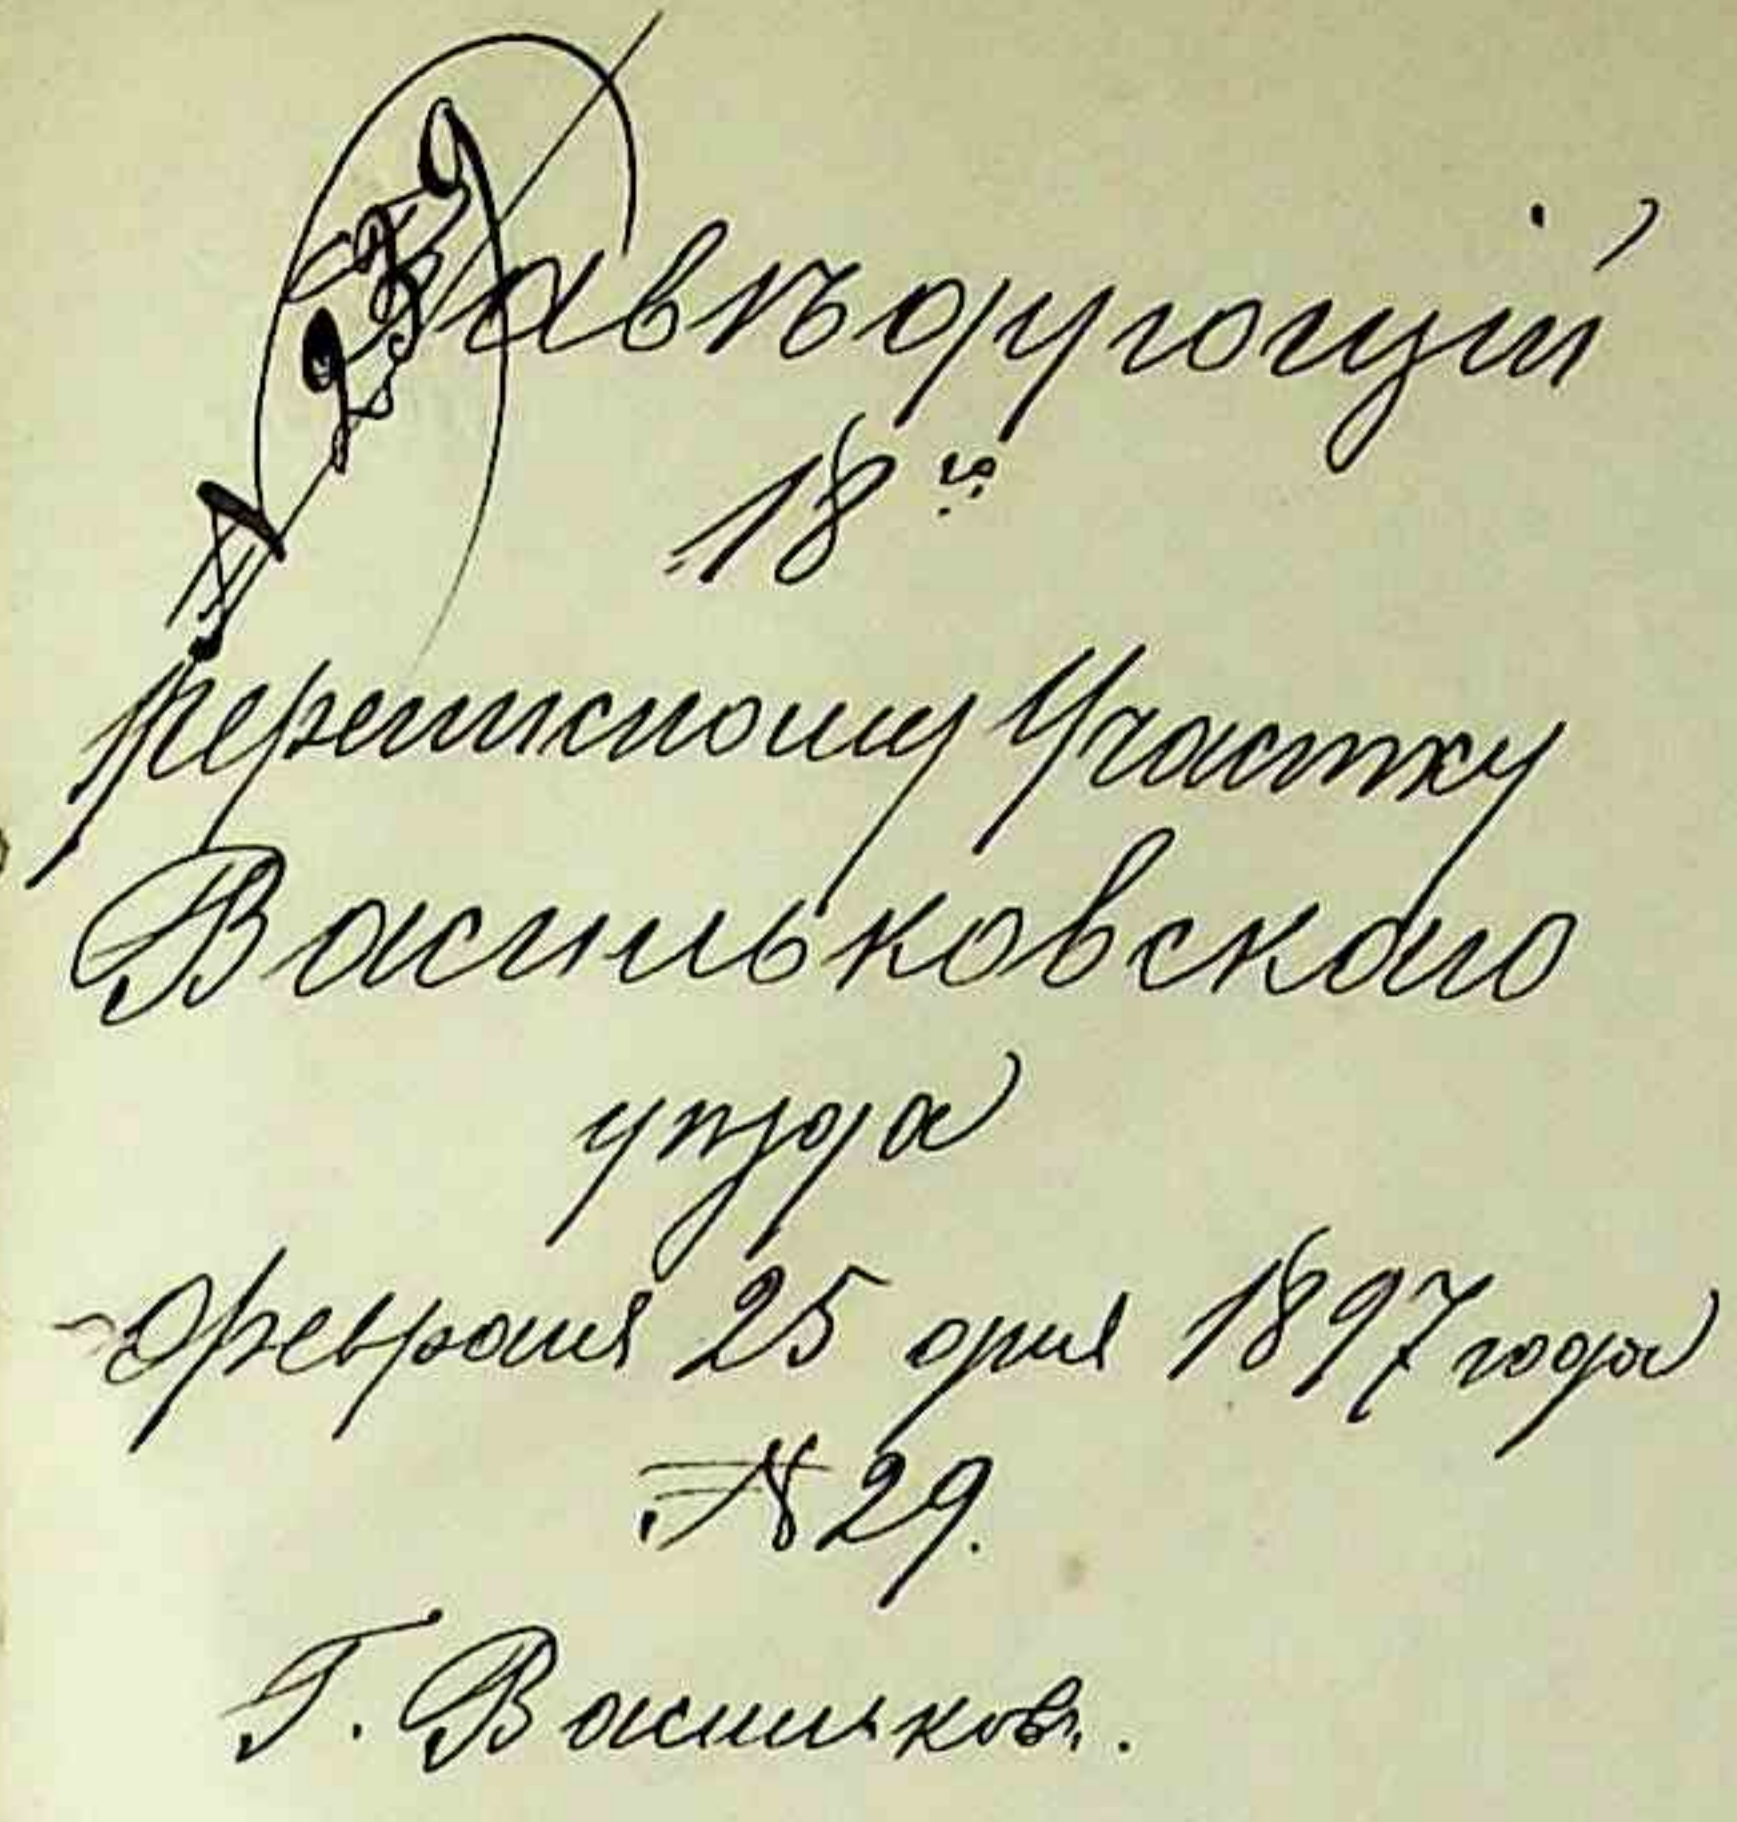 Завѣдующій
18ъ.
переписному Участку
Васильковскаго
уѣзда
Февраля 25 дня 1897 года
№ 29.
Г. Васильковъ.